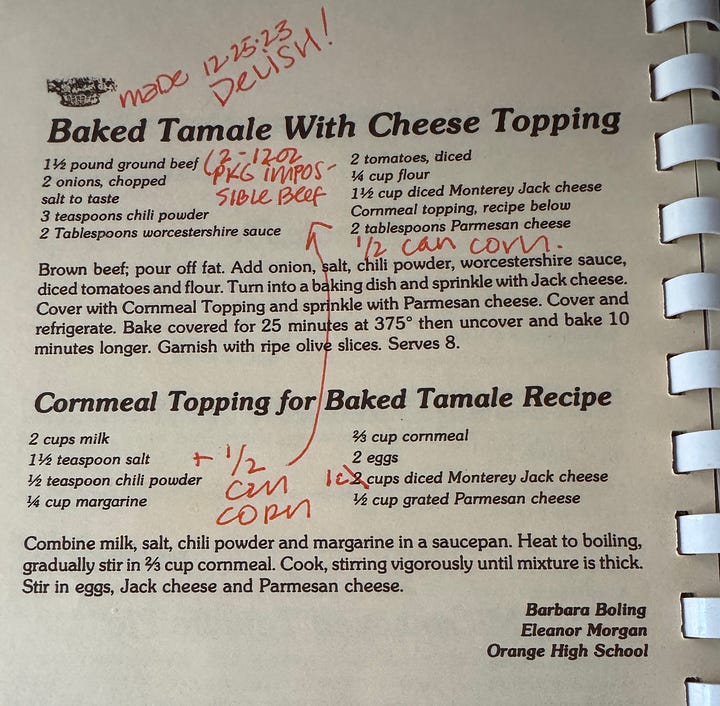 made 12-25-23
DELISH!
Baked Tamale With Cheese Topping
1½ pound ground beef (2-12oz
2 onions, chopped PKG IMPOS-
salt to taste SIBLE BEEF
3 teaspoons chili powder
2 Tablespoons worcestershire sauce
2 tomatoes, diced
¼ cup flour
1½ cup diced Monterey Jack cheese
Cornmeal topping, recipe below
2 tablespoons Parmesan cheese
1/2 can corn.
Brown beef; pour off fat. Add onion, salt, chili powder, worcestershire sauce,
diced tomatoes and flour. Turn into a baking dish and sprinkle with Jack cheese.
Cover with Cornmeal Topping and sprinkle with Parmesan cheese. Cover and
refrigerate. Bake covered for 25 minutes at 375° then uncover and bake 10
minutes longer. Garnish with ripe olive slices. Serves 8.
Cornmeal Topping for Baked Tamale Recipe
2 cups milk
1½ teaspoon salt
½ teaspoon chili powder
¼ cup margarine
+ 1/2
can
CORN
⅔ cup cornmeal
2 eggs
2 cups diced Monterey Jack cheese
½ cup grated Parmesan cheese
Combine milk, salt, chili powder and margarine in a saucepan. Heat to boiling,
gradually stir in ⅔ cup cornmeal. Cook, stirring vigorously until mixture is thick.
Stir in eggs, Jack cheese and Parmesan cheese.
Barbara Boling
Eleanor Morgan
Orange High School